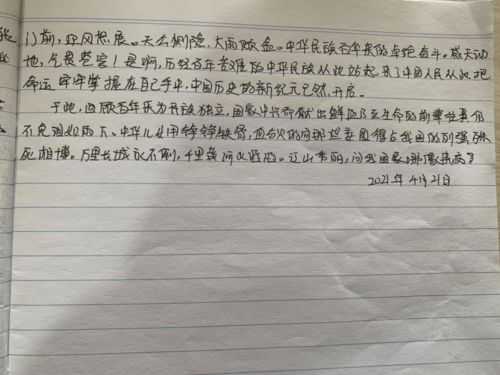 门前,迎风招展。天公恻隐,大雨倾盆。中华民族百年来的卓绝奋斗。感天动
地,气贯苍穹!是啊,历经百年苦难的中华民族从此站起来了中国人民从此把
命运牢牢掌握在自己手中,中国历史的新纪元已然开启。
于此,回顾百年来为民族独立,国家中兴而献出鲜血乃至生命的前辈往事仍
不免潸然泪下。中华儿女用铮铮铁骨,
死相搏。万里长城永不倒,千里黄河水滔滔。江山秀丽,问我国家哪像染病?
2021年4月21日